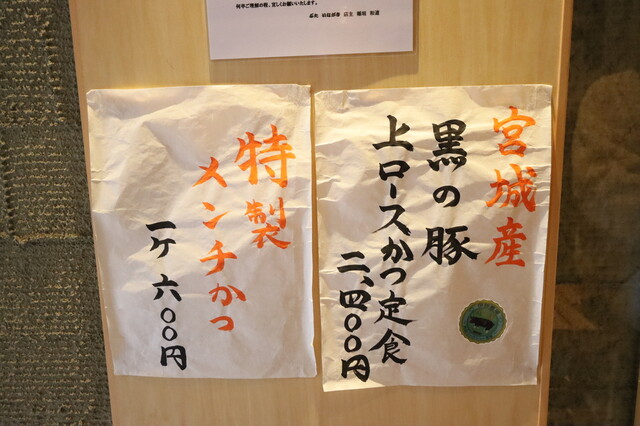 何卒ご理解の程、宜しくお願いいたします。
宮城産
黒の豚
上ロースかつ定食
二、四〇〇円
特製
メンチかつ
一ケ 六〇〇円